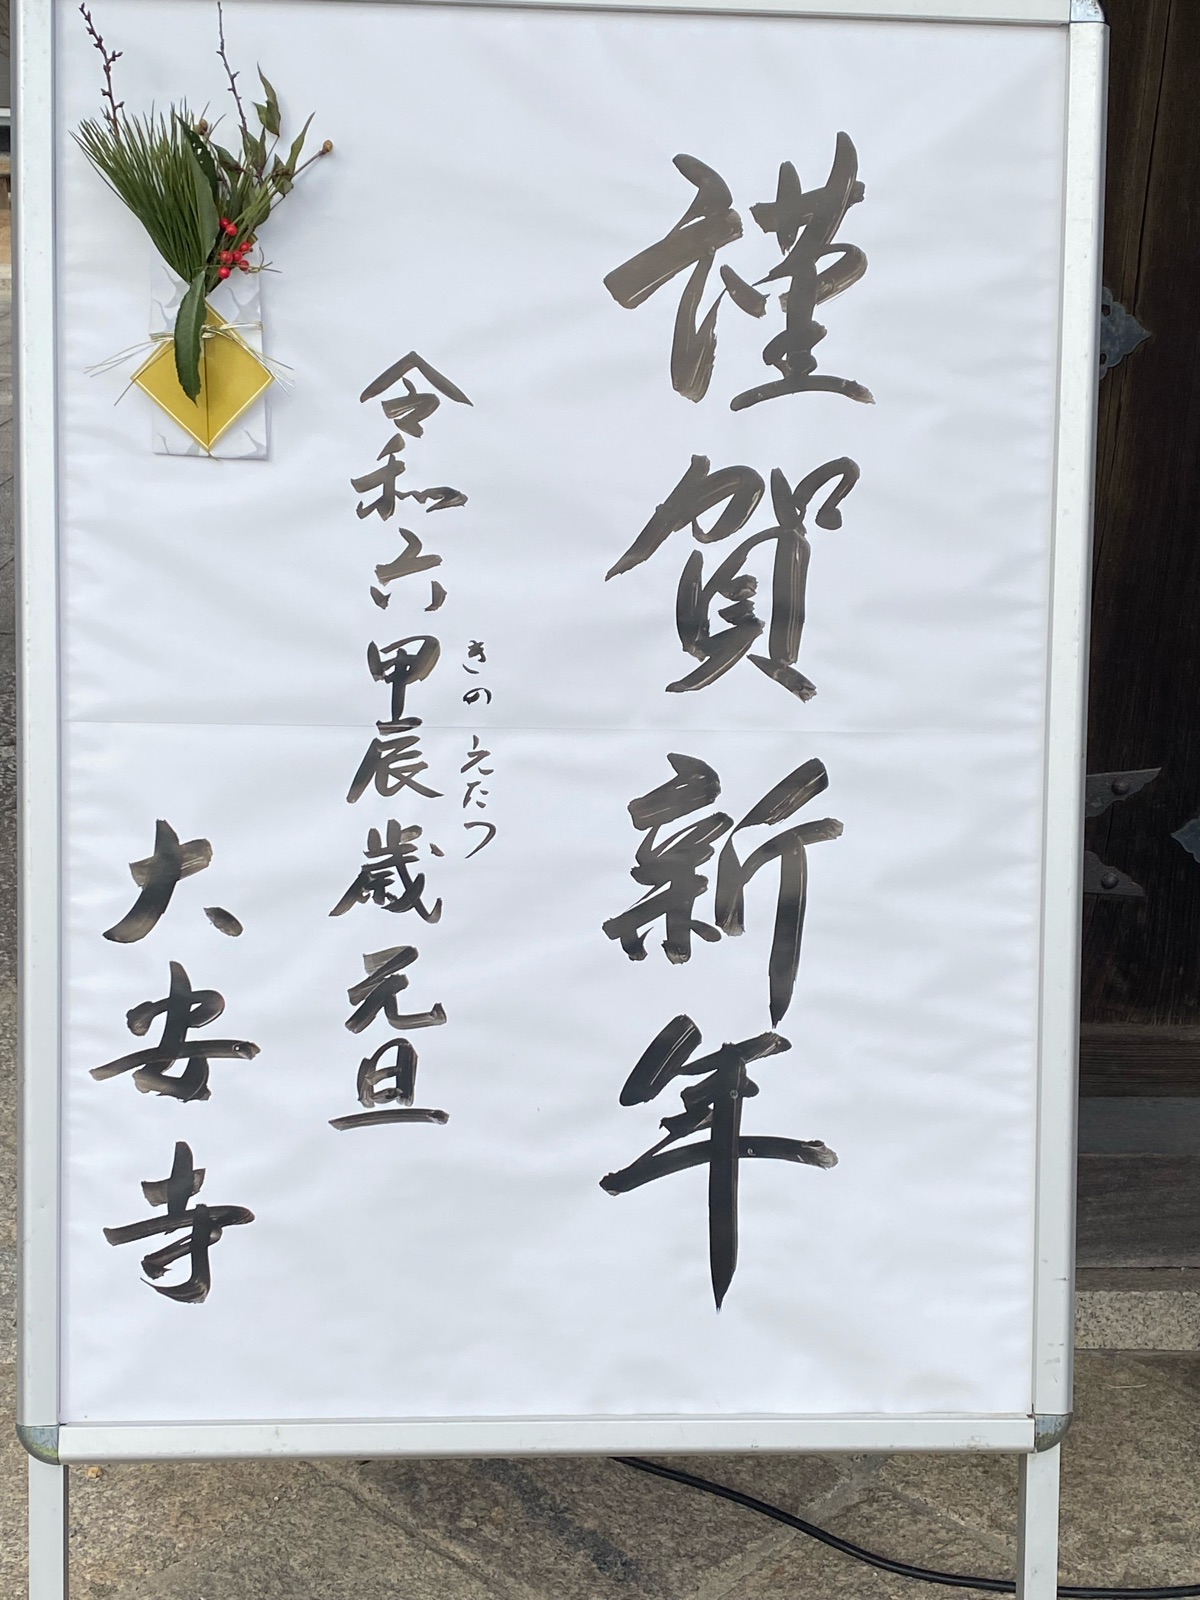 謹賀新年
令和六甲辰歳元旦
きのえたつ
大安寺